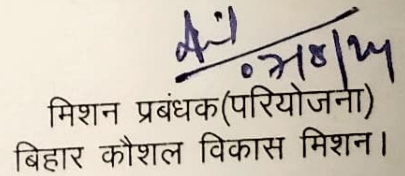 मिशन प्रबंधक(परियोजना)
बिहार कौशल विकास मिशन।